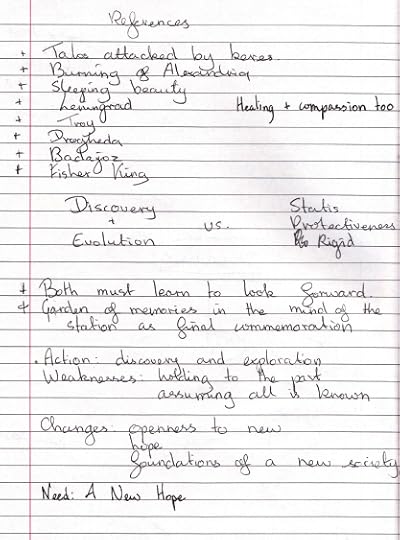 References
+ Talos attacked by boxes.
+ Burning of Alexandria
+ Sleeping beauty
+ Leningrad Healing + compassion too
+ Troy
+ Drogheda
+ Badajoz
+ Fisher King
Discovery Statis
+ vs. Protectiveness
Evolution Rigid
+ Both must learn to look forward.
+ Garden of memories in the mind of the
station as final commemoration
. Action: discovery and exploration
Weaknesses: holding to the past
assuming all is known
Changes: openness to new
hope
foundations of a new society
Need: A New Hope